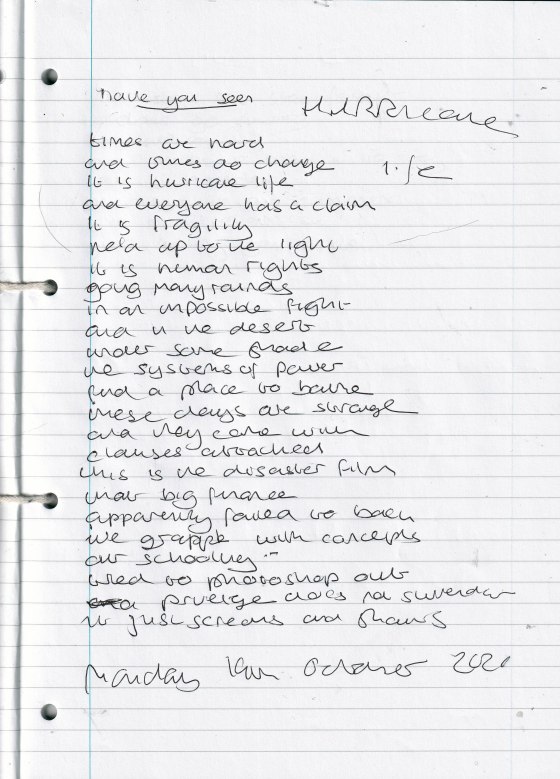 have you seen
Hurricane
times are hard
and times do change
life
it is hurricane life
and everyone has a claim
it is fragility
held up to the light
it is human rights
going many rounds
in an impossible fight
and in the desert
under some shade
the systems of power
find a place to bathe
these days are strange
and they come with
clauses attached
this is the disaster film
that big finance
apparently failed to back
we grapple with concepts
our schooling
tried to photoshop out
privilege does not surrender
it just screams and shouts
Monday October 2020